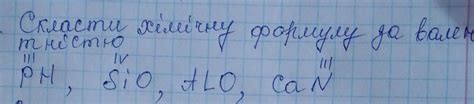 Скласти хімічну формулу за вален
тністю
III IV III
PH, SiO, ALO, CaN